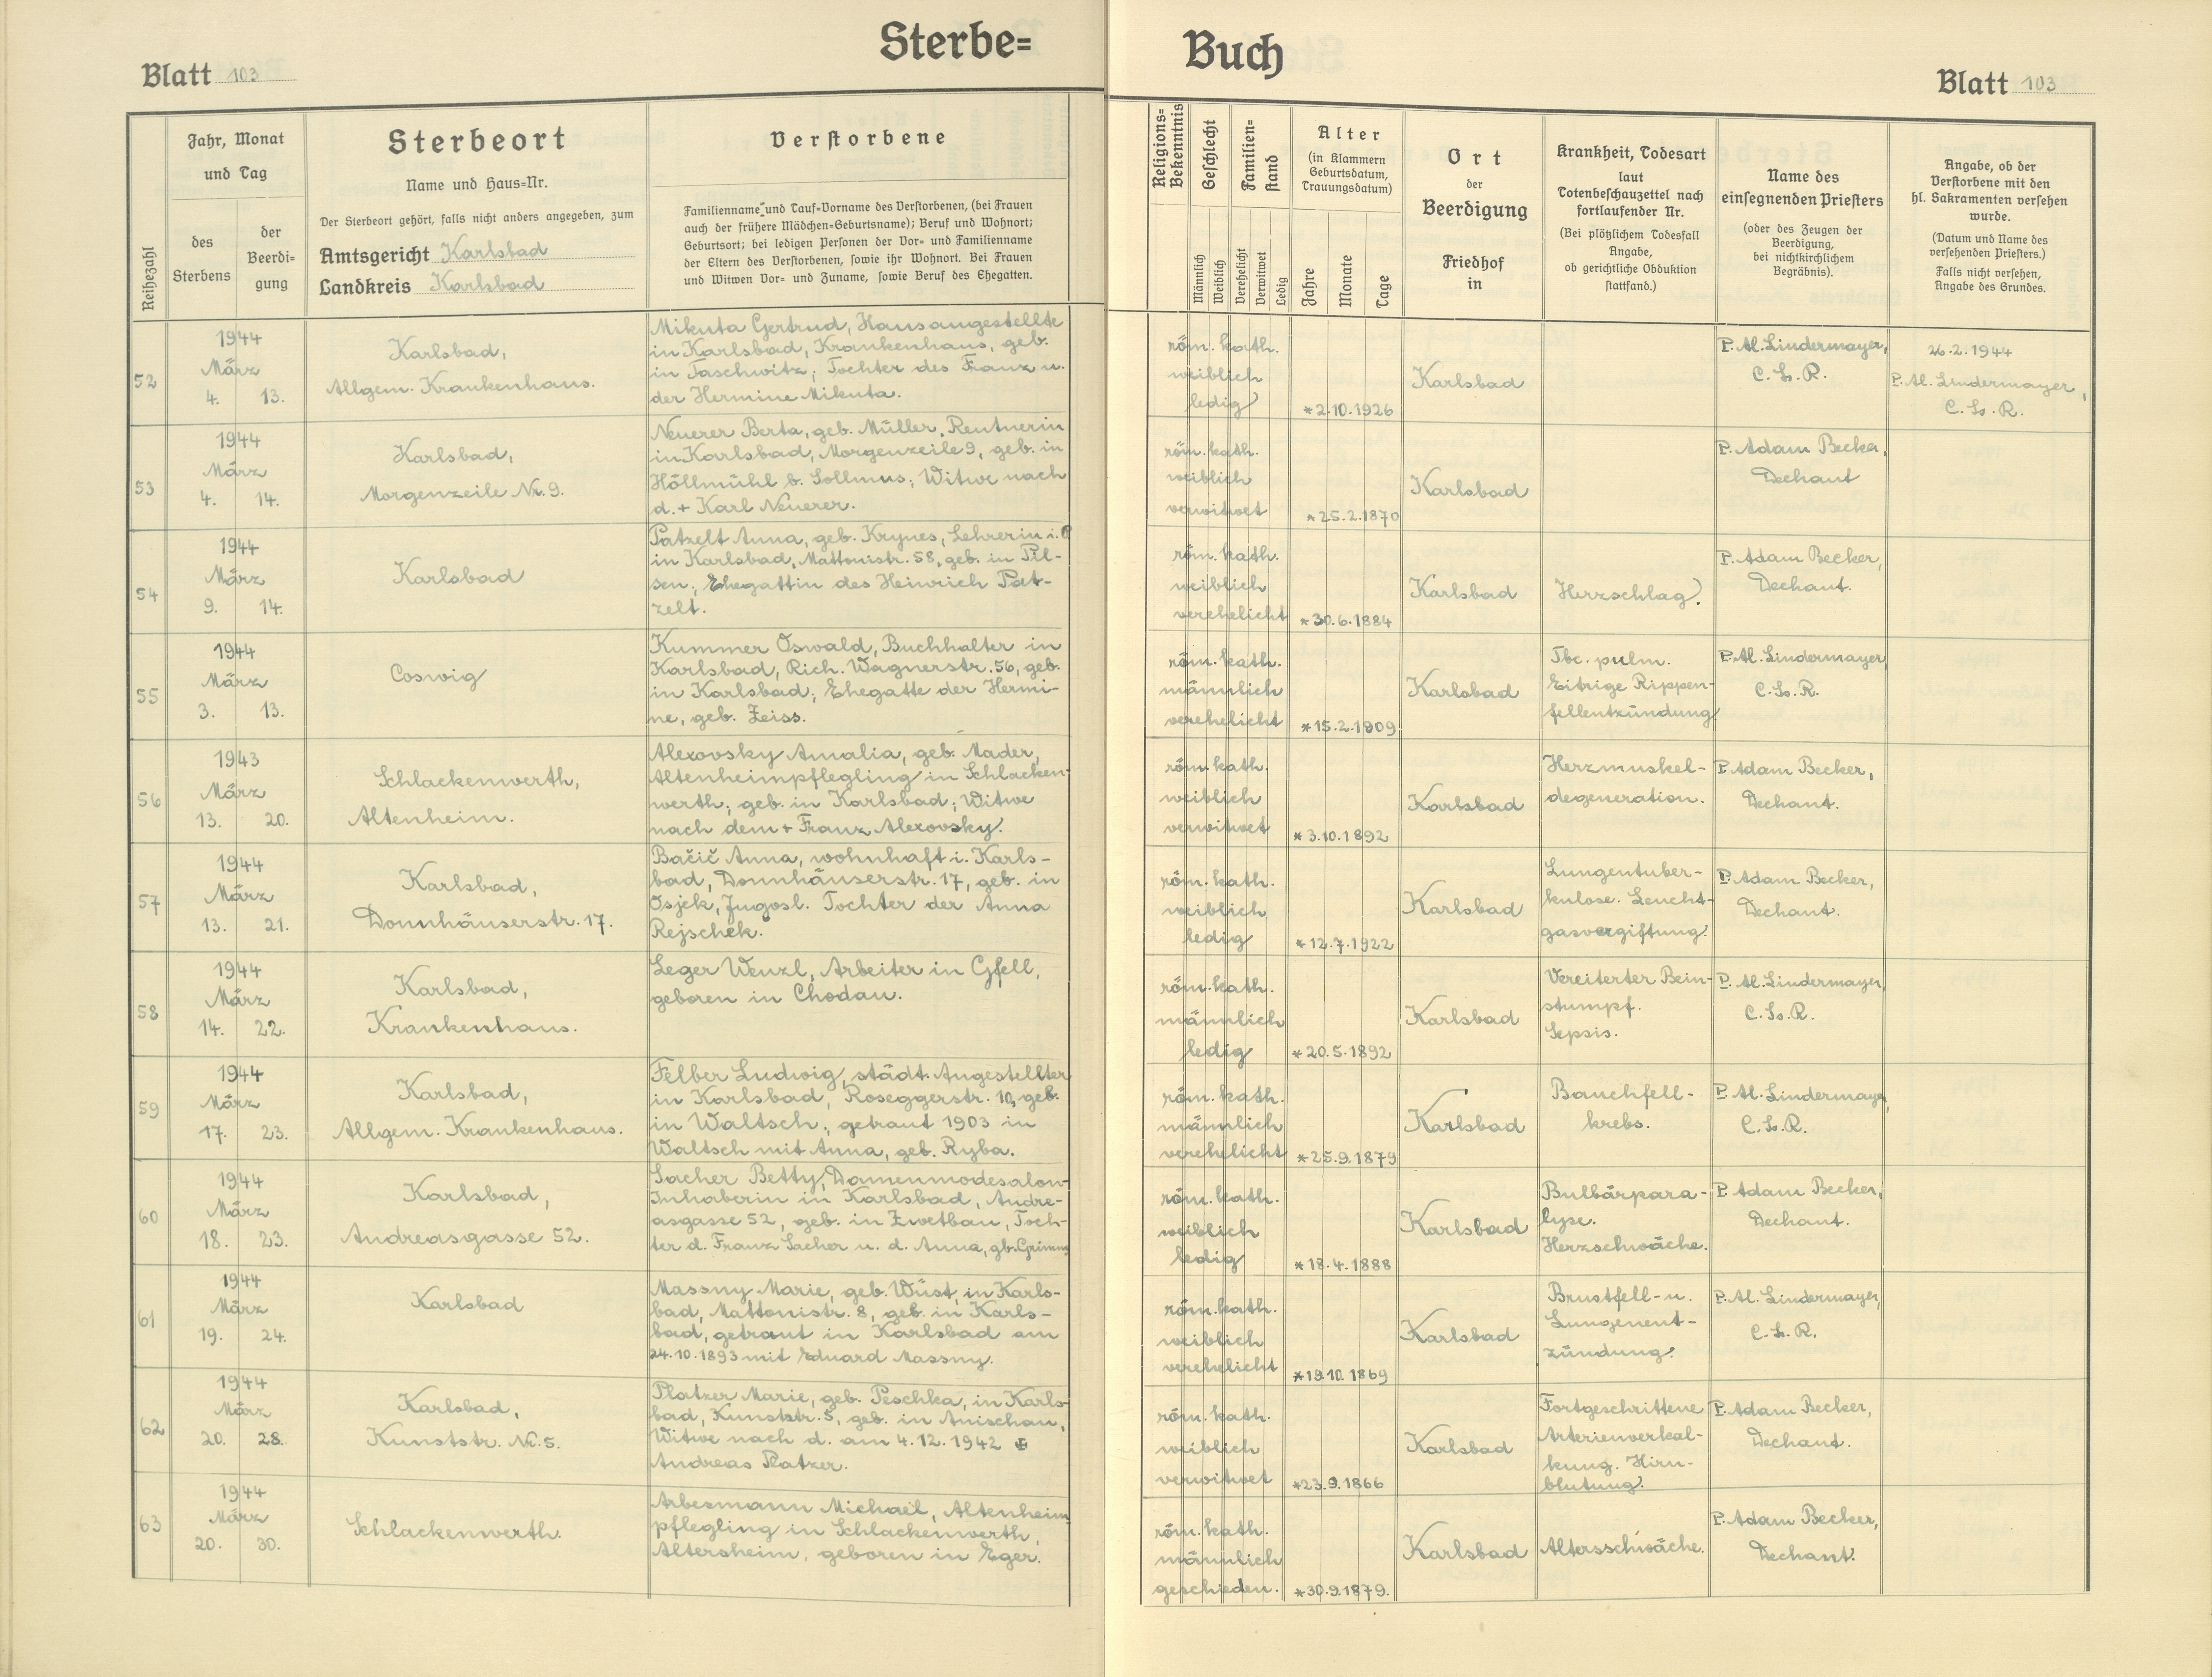 Sterbe= Buch
Blatt 103
Blatt 103
Reihezahl
Jahr, Monat
und Tag
des
Sterbens
der
Beerdi=
gung
Sterbeort
Name und Haus=Nr.
Der Sterbeort gehört, falls nicht anders angegeben, zum
Amtsgericht Karlsbad
Landkreis Karlsbad
Verstorbene
Familienname und Tauf=Vorname des Verstorbenen, (bei Frauen
auch der frühere Mädchen=Geburtsname); Beruf und Wohnort;
Geburtsort; bei ledigen Personen der Vor= und Familienname
der Eltern des Verstorbenen, sowie ihr Wohnort. Bei Frauen
und Witwen Vor= und Zuname, sowie Beruf des Ehegatten.
Religions=
Bekenntnis
Geschlecht
Männlich
Weiblich
Familien=
stand
Verehelicht
Verwitwet
Ledig
Alter
(in Klammern
Geburtsdatum,
Trauungsdatum)
Jahre
Monate
Tage
Ort
der
Beerdigung
Friedhof
in
Krankheit, Todesart
laut
Totenbeschauzettel nach
fortlaufender Nr.
(Bei plötzlichem Todesfall
Angabe,
ob gerichtliche Obduktion
stattfand.)
Name des
einsegnenden Priesters
(oder des Zeugen der
Beerdigung,
bei nichtkirchlichem
Begräbnis).
Angabe, ob der
Verstorbene mit den
hl. Sakramenten versehen
wurde.
(Datum und Name des
versehenden Priesters.)
Falls nicht versehen,
Angabe des Grundes.
52
1944
März
4. 13.
Karlsbad,
Allgem. Krankenhaus.
Mikuta Gertrud, Hausangestellte
in Karlsbad, Krankenhaus, geb.
in Taschwitz; Tochter des Franz u.
der Hermine Mikuta.
röm. kath.
weiblich
ledig
*2.10.1926
Karlsbad
P. Al. Lindermayer,
C. Ss. R.
26.2.1944
P. Al. Lindermayer,
C. Ss. R.
53
1944
März
4. 14.
Karlsbad,
Morgenzeile Nr. 9.
Neuerer Berta, geb. Müller, Rentnerin
in Karlsbad, Morgenzeile 9, geb. in
Höllmühl b. Sollmus; Witwe nach
d. + Karl Neuerer.
röm. kath.
weiblich
verwitwet
*25.2.1870
Karlsbad
P. Adam Becker,
Dechant
54
1944
März
9. 14.
Karlsbad
Patzelt Anna, geb. Krynes, Lehrerin i. R
in Karlsbad, Mattonistr. 58, geb. in Pil-
sen; Ehegattin des Heinrich Pat-
zelt.
röm. kath.
weiblich
verehelicht
*30.6.1884
Karlsbad
Herzschlag.
P. Adam Becker,
Dechant.
55
1944
März
3. 13.
Coswig
Kummer Oswald, Buchhalter in
Karlsbad, Rich. Wagnerstr. 56, geb.
in Karlsbad; Ehegatte der Hermi-
ne, geb. Zeiss.
röm. kath.
männlich
verehelicht
*15.2.1909
Karlsbad
Tbc. pulm.
Eitrige Rippen-
fellentzündung.
P. Al. Lindermayer,
C. Ss. R.
56
1943
März
13. 20.
Schlackenwerth,
Altenheim.
Alexovsky Amalia, geb. Mader,
Altenheimpflegling in Schlacken-
werth; geb. in Karlsbad; Witwe
nach dem + Franz Alexovsky.
röm. kath.
weiblich
verwitwet
*3.10.1892
Karlsbad
Herzmuskel-
degeneration.
P. Adam Becker,
Dechant.
57
1944
März
13. 21.
Karlsbad,
Donnhäuserstr. 17.
Bačič Anna, wohnhaft i. Karls-
bad, Donnhäuserstr. 17, geb. in
Osjek, Jugosl. Tochter der Anna
Rejschek.
röm. kath.
weiblich
ledig
*12.7.1922
Karlsbad
Lungentuber-
kulose. Leucht-
gasvergiftung.
P. Adam Becker,
Dechant.
58
1944
März
14. 22.
Karlsbad,
Krankenhaus.
Leger Wenzl, Arbeiter in Gfell,
geboren in Chodau.
röm. kath.
männlich
ledig
*20.5.1892
Karlsbad
Vereiterter Bein-
stumpf.
Sepsis.
P. Al. Lindermayer,
C. Ss. R.
59
1944
März
17. 23.
Karlsbad,
Allgem. Krankenhaus.
Felber Ludwig, städt. Angestellter
in Karlsbad, Roseggerstr. 10, geb.
in Waltsch; getraut 1903 in
Waltsch mit Anna, geb. Ryba.
röm. kath.
männlich
verehelicht
*25.9.1879
Karlsbad
Bauchfell-
krebs.
P. Al. Lindermayer,
C. Ss. R.
60
1944
März
18. 23.
Karlsbad,
Andreasgasse 52.
Sacher Betty, Damenmodesalon-
Inhaberin in Karlsbad, Andre-
asgasse 52, geb. in Zwetbau, Toch-
ter d. Franz Sacher u. d. Anna, gb. Grimm
röm. kath.
weiblich
ledig
*18.4.1888
Karlsbad
Bulbärpara-
lyse.
Herzschwäche.
P. Adam Becker,
Dechant.
61
1944
März
19. 24.
Karlsbad
Massny Marie, geb. Wüst, in Karls-
bad, Mattonistr. 8, geb. in Karls-
bad, getraut in Karlsbad am
24.10.1893 mit Eduard Massny.
röm. kath.
weiblich
verehelicht
*19.10.1869
Karlsbad
Brustfell- u.
Lungenent-
zündung.
P. Al. Lindermayer,
C. Ss. R.
62
1944
März
20. 28.
Karlsbad,
Kunststr. Nr. 5.
Platzer Marie, geb. Peschka, in Karls-
bad, Kunststr. 5, geb. in Anischau,
Witwe nach d. am 4.12.1942 +
Andreas Platzer.
röm. kath.
weiblich
verwitwet
*23.9.1866
Karlsbad
Fortgeschrittene
Arterienverkal-
kung. Hirn-
blutung.
P. Adam Becker,
Dechant.
63
1944
März
20. 30.
Schlackenwerth.
Arbesmann Michael, Altenheim-
pflegling in Schlackenwerth,
Altersheim, geboren in Eger.
röm. kath.
männlich
geschieden.
*30.9.1879.
Karlsbad
Altersschwäche.
P. Adam Becker,
Dechant.